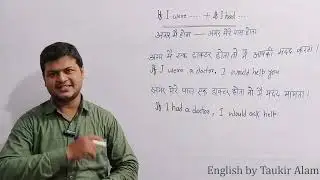 If I were ---- + If I had ...
अगर मैं होता — अगर मेरे पास होता
अगर मैं एक डाक्टर होता तो मैं आपकी मदद करता।
If I were a doctor, I would help you
अगर मेरे पास एक डाक्टर होता तो मैं मदद मांगता।
If I had a doctor, I would ask help
English by Taukir Alam